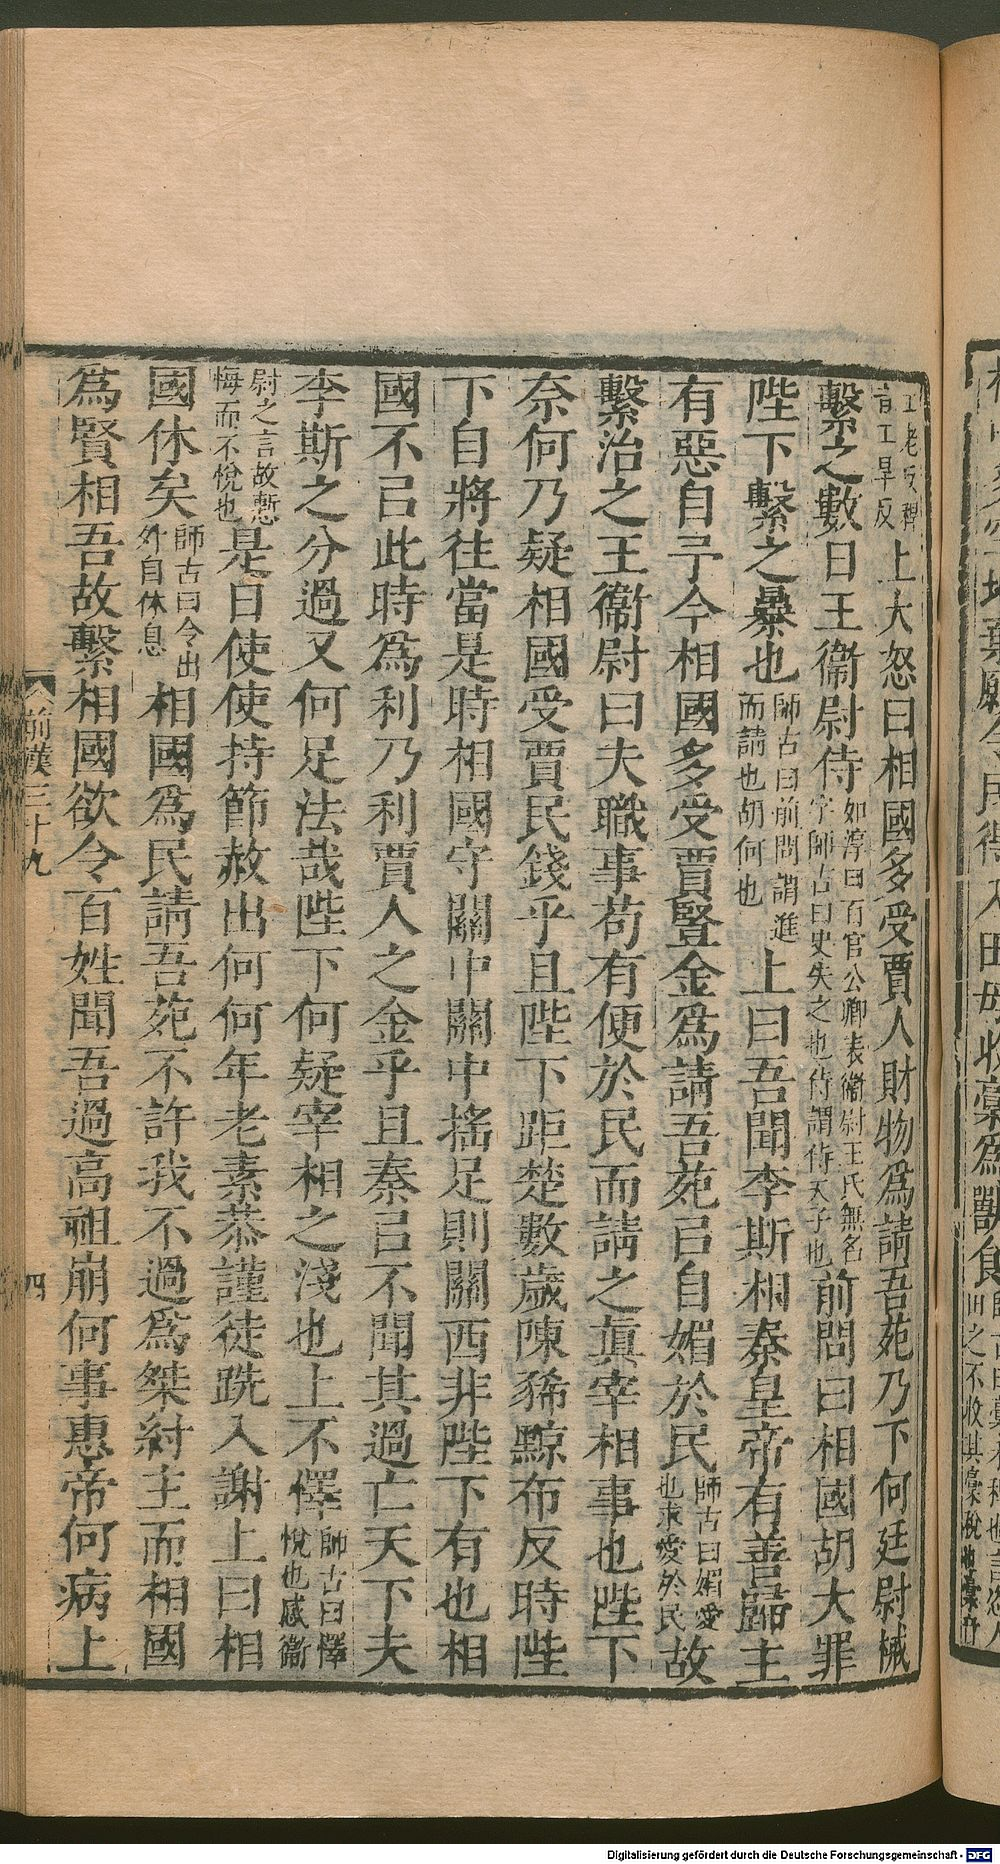 工老反稈音工旱反上大怒曰相國多受賈人財物爲請吾苑乃下何廷尉械
繫之數日王衞尉侍如淳曰百官公卿表衞尉王氏無名字師古曰史失之也侍謂侍天子也前問曰相國胡大罪
陛下繫之暴也師古曰前問謂進而請也胡何也上曰吾聞李斯相秦皇帝有善歸主
有惡自予今相國多受賈豎金爲請吾苑㠯自媚於民師古曰媚愛也求愛於民故
繫治之王衞尉曰夫職事苟有便於民而請之眞宰相事也陛下
奈何乃疑相國受賈民錢乎且陛下距楚數歲陳豨黥布反時陛
下自將往當是時相國守關中關中搖足則關西非陛下有也相
國不㠯此時爲利乃利賈人之金乎且秦㠯不聞其過亡天下夫
李斯之分過又何足法哉陛下何疑宰相之淺也上不懌師古曰懌悅也感衞
尉之言故慙悔而不悅也是日使使持節赦出何何年老素恭謹徒跣入謝上曰相
國休矣師古曰令出外自休息相國爲民請吾苑不許我不過爲桀紂主而相國
爲賢相吾故繫相國欲令百姓聞吾過高祖崩何事惠帝何病上
前漢三十九
四
Digitalisierung gefördert durch die Deutsche Forschungsgemeinschaft - DFG